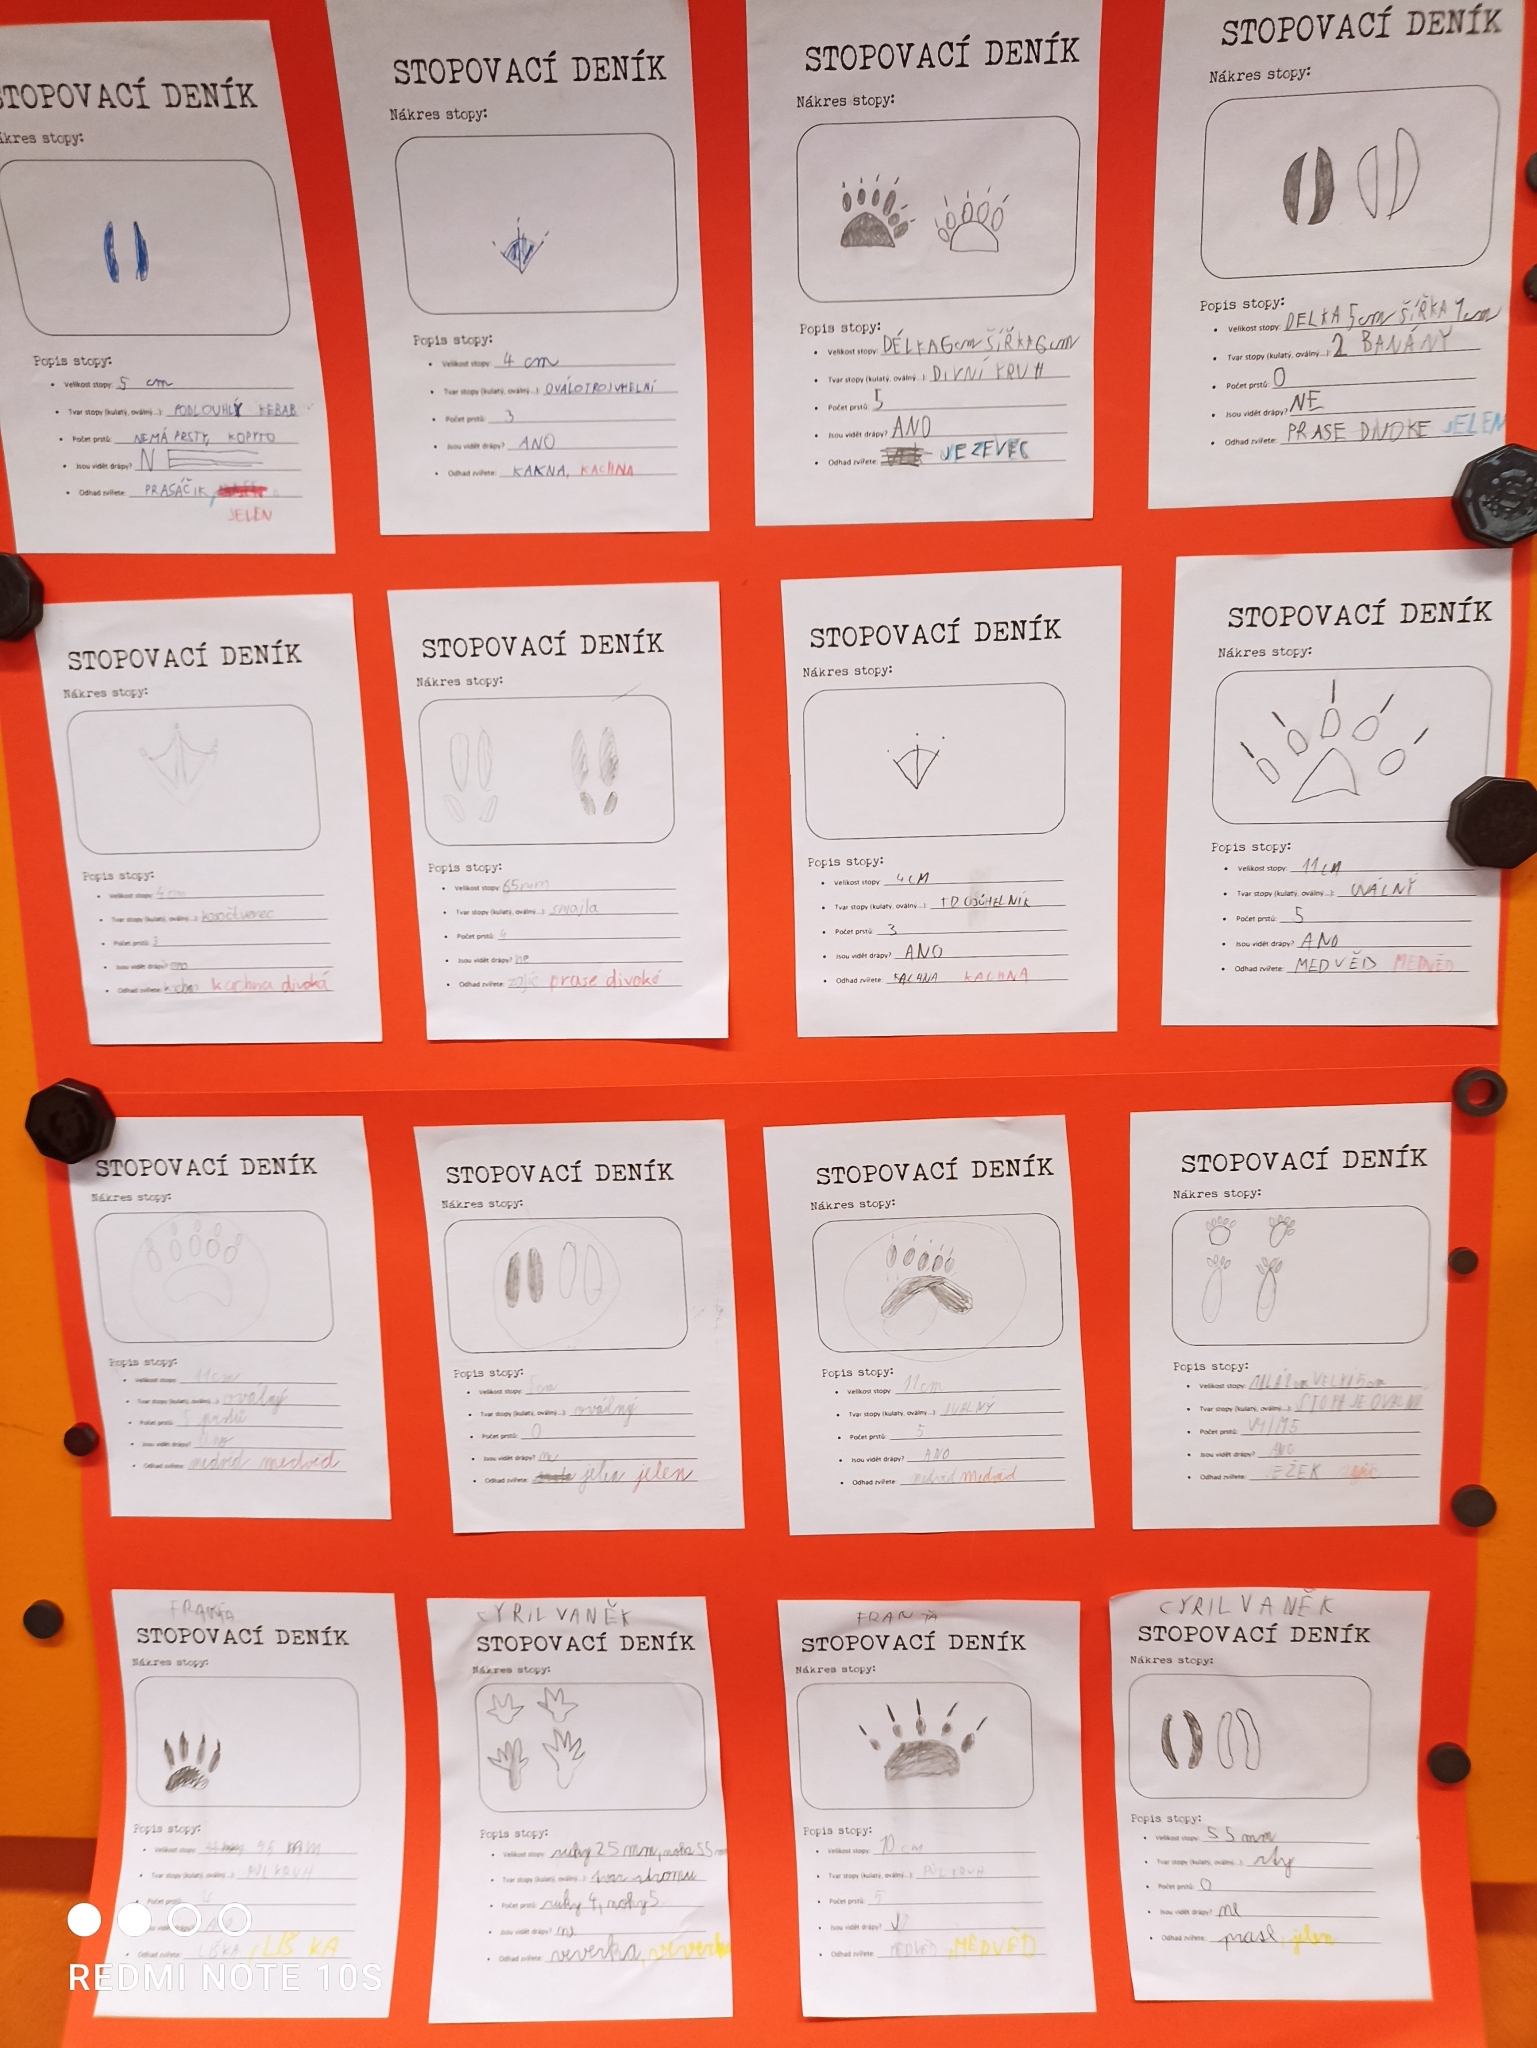 STOPOVACÍ DENÍK
Nákres stopy:
Popis stopy:
Velikost stopy: 5 cm
Tvar stopy (kulatý, oválný...): PODLOUHLÝ KEBAB
Počet prstů: NEMÁ PRSTY, KOPYTO
Jsou vidět drápy? NE
Odhad zvířete: PRASÁČIK,
JELEN
STOPOVACÍ DENÍK
Nákres stopy:
Popis stopy:
Velikost stopy: 4 cm
Tvar stopy (kulatý, oválný...): OVÁLOTROJUHELNÍ
Počet prstů: 3
Jsou vidět drápy? ANO
Odhad zvířete: KAKNA, KACHNA
STOPOVACÍ DENÍK
Nákres stopy:
Popis stopy:
Velikost stopy: DÉLKA 6cm ŠÍŘKA 6cm
Tvar stopy (kulatý, oválný...): DIVNÍ KRUH
Počet prstů: 5
Jsou vidět drápy? ANO
Odhad zvířete: JEZEVEC
STOPOVACÍ DENÍK
Nákres stopy:
Popis stopy:
Velikost stopy: DELKA 5cm ŠÍŘKA 1cm
Tvar stopy (kulatý, oválný...): 2 BANÁNY
Počet prstů: 0
Jsou vidět drápy? NE
Odhad zvířete: PRASE DIVOKE JELEN
STOPOVACÍ DENÍK
Nákres stopy:
Popis stopy:
Velikost stopy: 4 cm
Tvar stopy (kulatý, oválný...):
Počet prstů: 3
Jsou vidět drápy? ano
Odhad zvířete: kachna divoká
STOPOVACÍ DENÍK
Nákres stopy:
Popis stopy:
Velikost stopy: 65mm
Tvar stopy (kulatý, oválný...):
Počet prstů: 4
Jsou vidět drápy? ne
Odhad zvířete: zajíc prase divoké
STOPOVACÍ DENÍK
Nákres stopy:
Popis stopy:
Velikost stopy: 4CM
Tvar stopy (kulatý, oválný...):
Počet prstů: 3
Jsou vidět drápy? ANO
Odhad zvířete: KACHNA KACHNA
STOPOVACÍ DENÍK
Nákres stopy:
Popis stopy:
Velikost stopy: 11CM
Tvar stopy (kulatý, oválný...): OVÁLNÝ
Počet prstů: 5
Jsou vidět drápy? ANO
Odhad zvířete: MEDVĚD MEDVĚD
STOPOVACÍ DENÍK
Nákres stopy:
Popis stopy:
Velikost stopy: 11cm
Tvar stopy (kulatý, oválný...): oválný
Počet prstů: 5 prstů
Jsou vidět drápy? Ano
Odhad zvířete: medvěd medvěd
STOPOVACÍ DENÍK
Nákres stopy:
Popis stopy:
Velikost stopy: 5cm
Tvar stopy (kulatý, oválný...): oválný
Počet prstů: 0
Jsou vidět drápy? ne
Odhad zvířete: jelen jelen
STOPOVACÍ DENÍK
Nákres stopy:
Popis stopy:
Velikost stopy: 11cm
Tvar stopy (kulatý, oválný...): OVÁLNÝ
Počet prstů: 5
Jsou vidět drápy? ANO
Odhad zvířete: medvěd Medvěd
STOPOVACÍ DENÍK
Nákres stopy:
Popis stopy:
Velikost stopy:
Tvar stopy (kulatý, oválný...): STOPA JE OVALNÍ
Počet prstů:
Jsou vidět drápy? ANO
Odhad zvířete: JEŽEK
FRANTA
STOPOVACÍ DENÍK
Nákres stopy:
Popis stopy:
Velikost stopy:
Tvar stopy (kulatý, oválný...): PŮLKRUH
Odhad zvířete: LIŠKA, LIŠKA
CYRIL VANĚK
STOPOVACÍ DENÍK
Nákres stopy:
Popis stopy:
Velikost stopy: ruky 25 mm, noha 55
Tvar stopy (kulatý, oválný...): tvar stromu
Počet prstů: ruky 4, nohy 5
Jsou vidět drápy? ne
Odhad zvířete: veverka, veverka
FRANTA
STOPOVACÍ DENÍK
Nákres stopy:
Popis stopy:
Velikost stopy: 10 cm
Tvar stopy (kulatý, oválný...): PŮLKRUH
Počet prstů: 5
Jsou vidět drápy?
Odhad zvířete: MEDVĚD, MEDVĚD
CYRIL VANĚK
STOPOVACÍ DENÍK
Nákres stopy:
Popis stopy:
Velikost stopy: 55 mm
Tvar stopy (kulatý, oválný...):
Počet prstů: 0
Jsou vidět drápy? ne
Odhad zvířete: prase, jelen
REDMI NOTE 10S